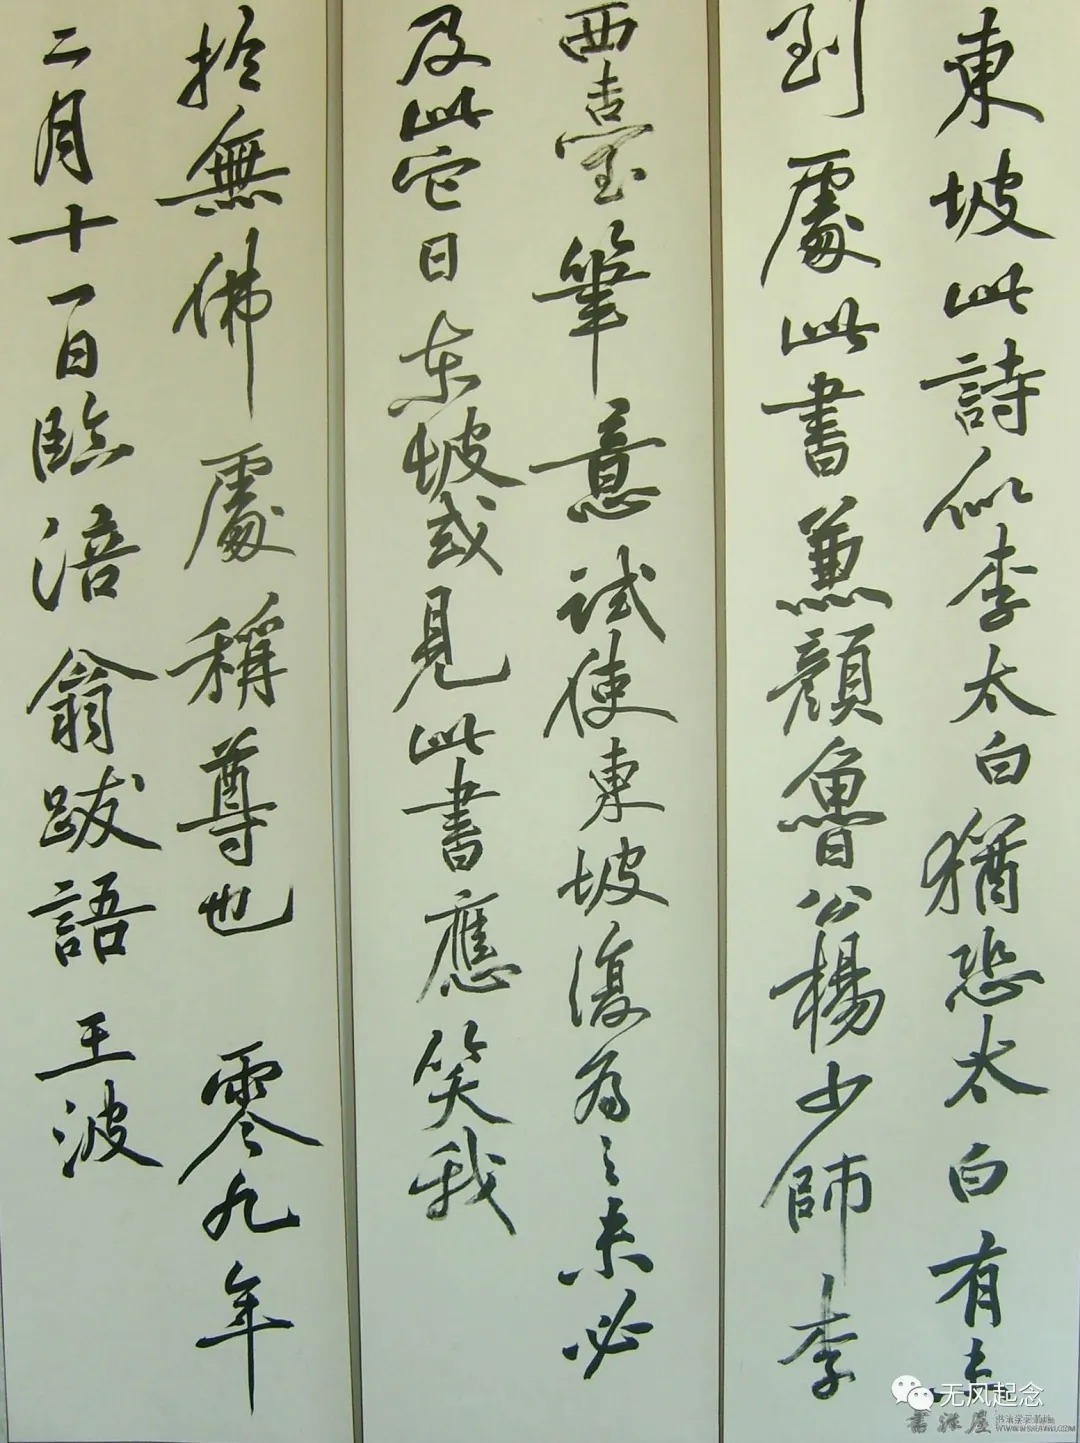 東坡此詩似李太白猶恐太白有未
到處此書兼顏魯公楊少師李
西臺筆意試使東坡復為之未必
及此它日东坡或見此書應笑我
於無佛處稱尊也 零九年
二月十一日臨涪翁跋語 王波
无风起念
書法屋